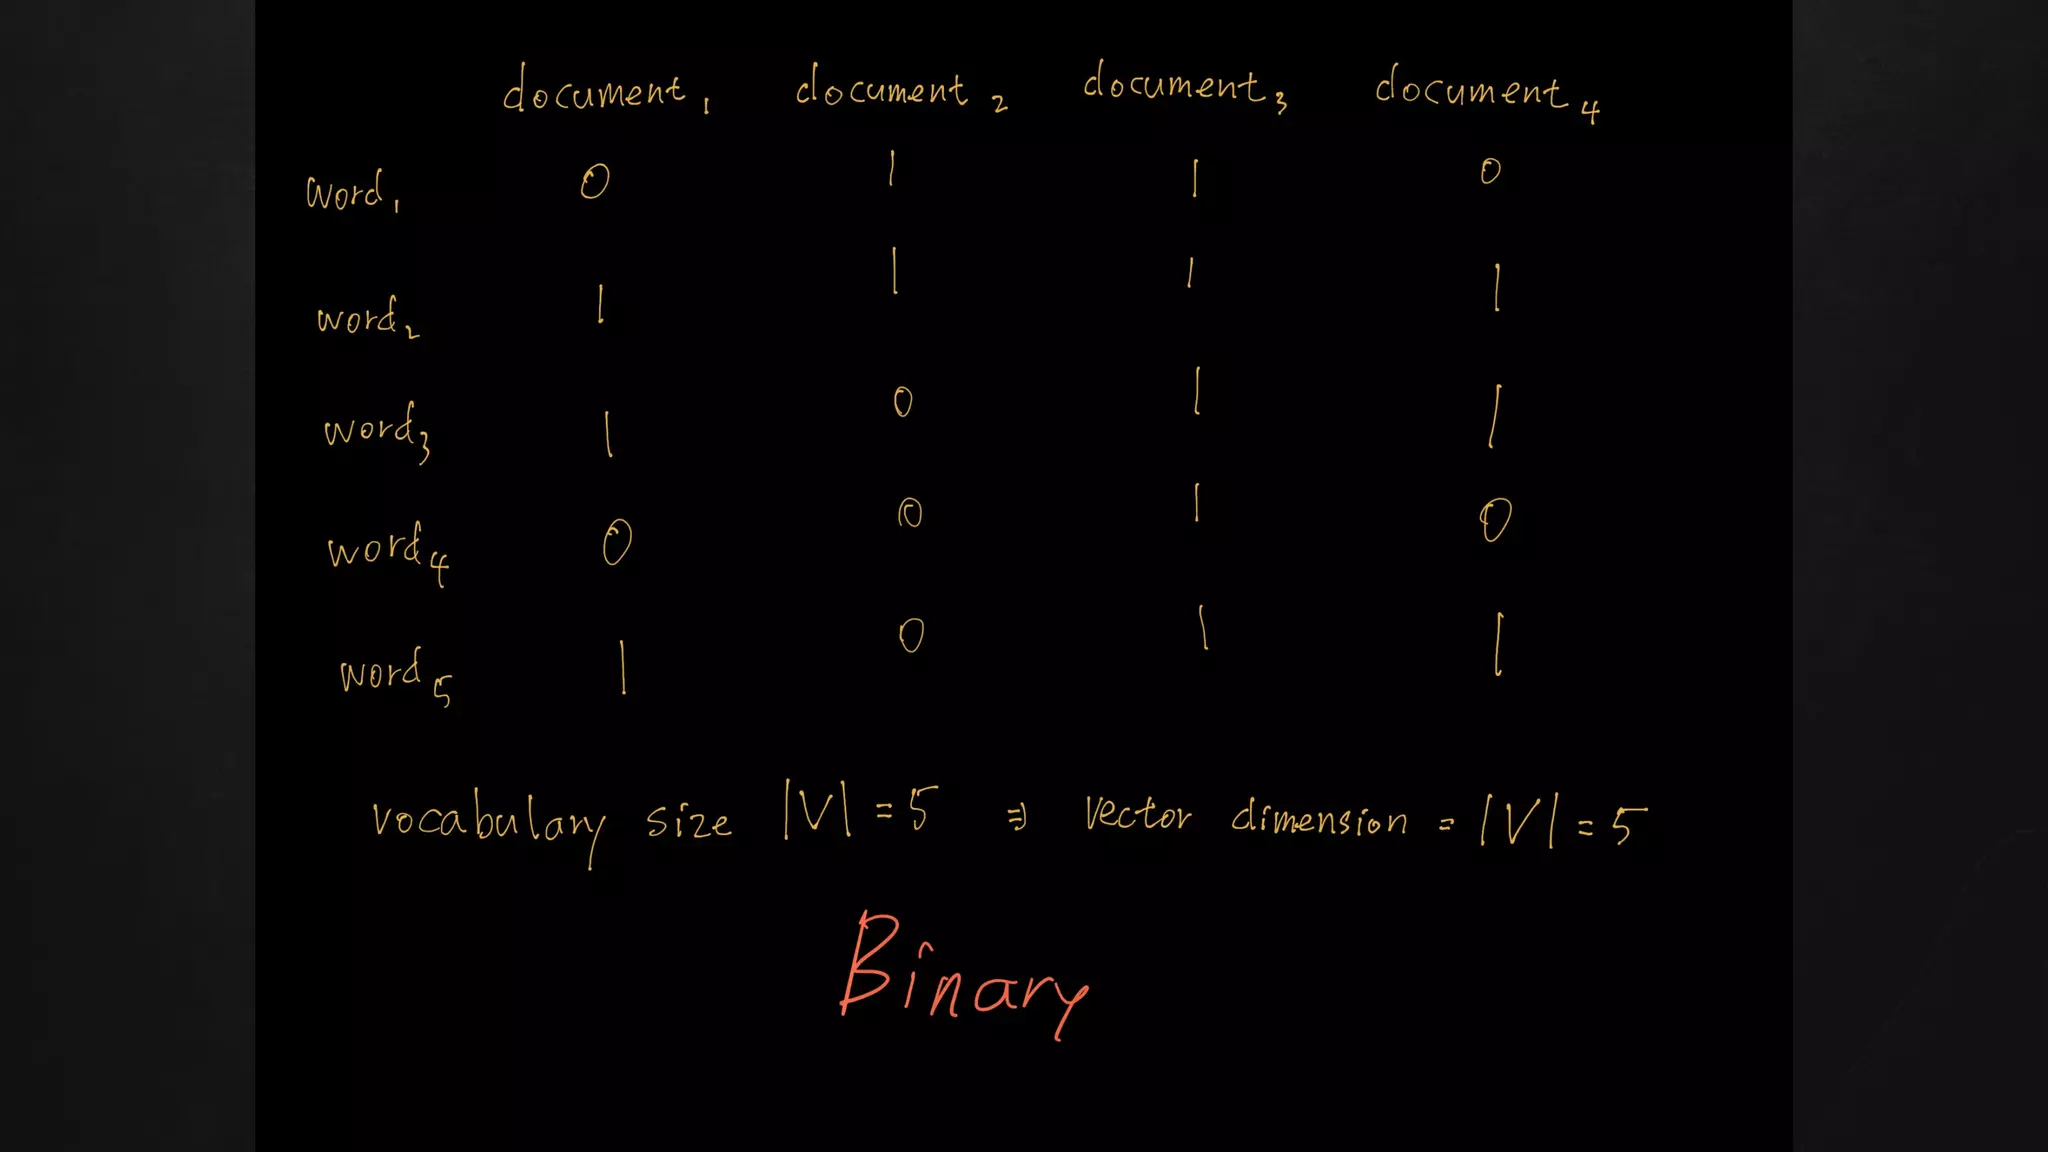 document₁ document₂ document₃ document₄
word₁ 0 1 1 0
word₂ 1 1 1 1
word₃ 1 0 1 1
word₄ 0 0 1 0
word₅ 1 0 1 1
vocabulary size |V| = 5 ⇒ vector dimension = |V| = 5
Binary